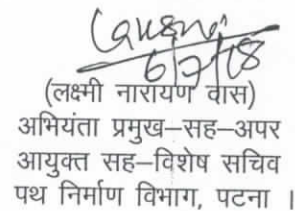 6/7/18
(लक्ष्मी नारायण दास)
अभियंता प्रमुख–सह–अपर
आयुक्त सह–विशेष सचिव
पथ निर्माण विभाग, पटना ।